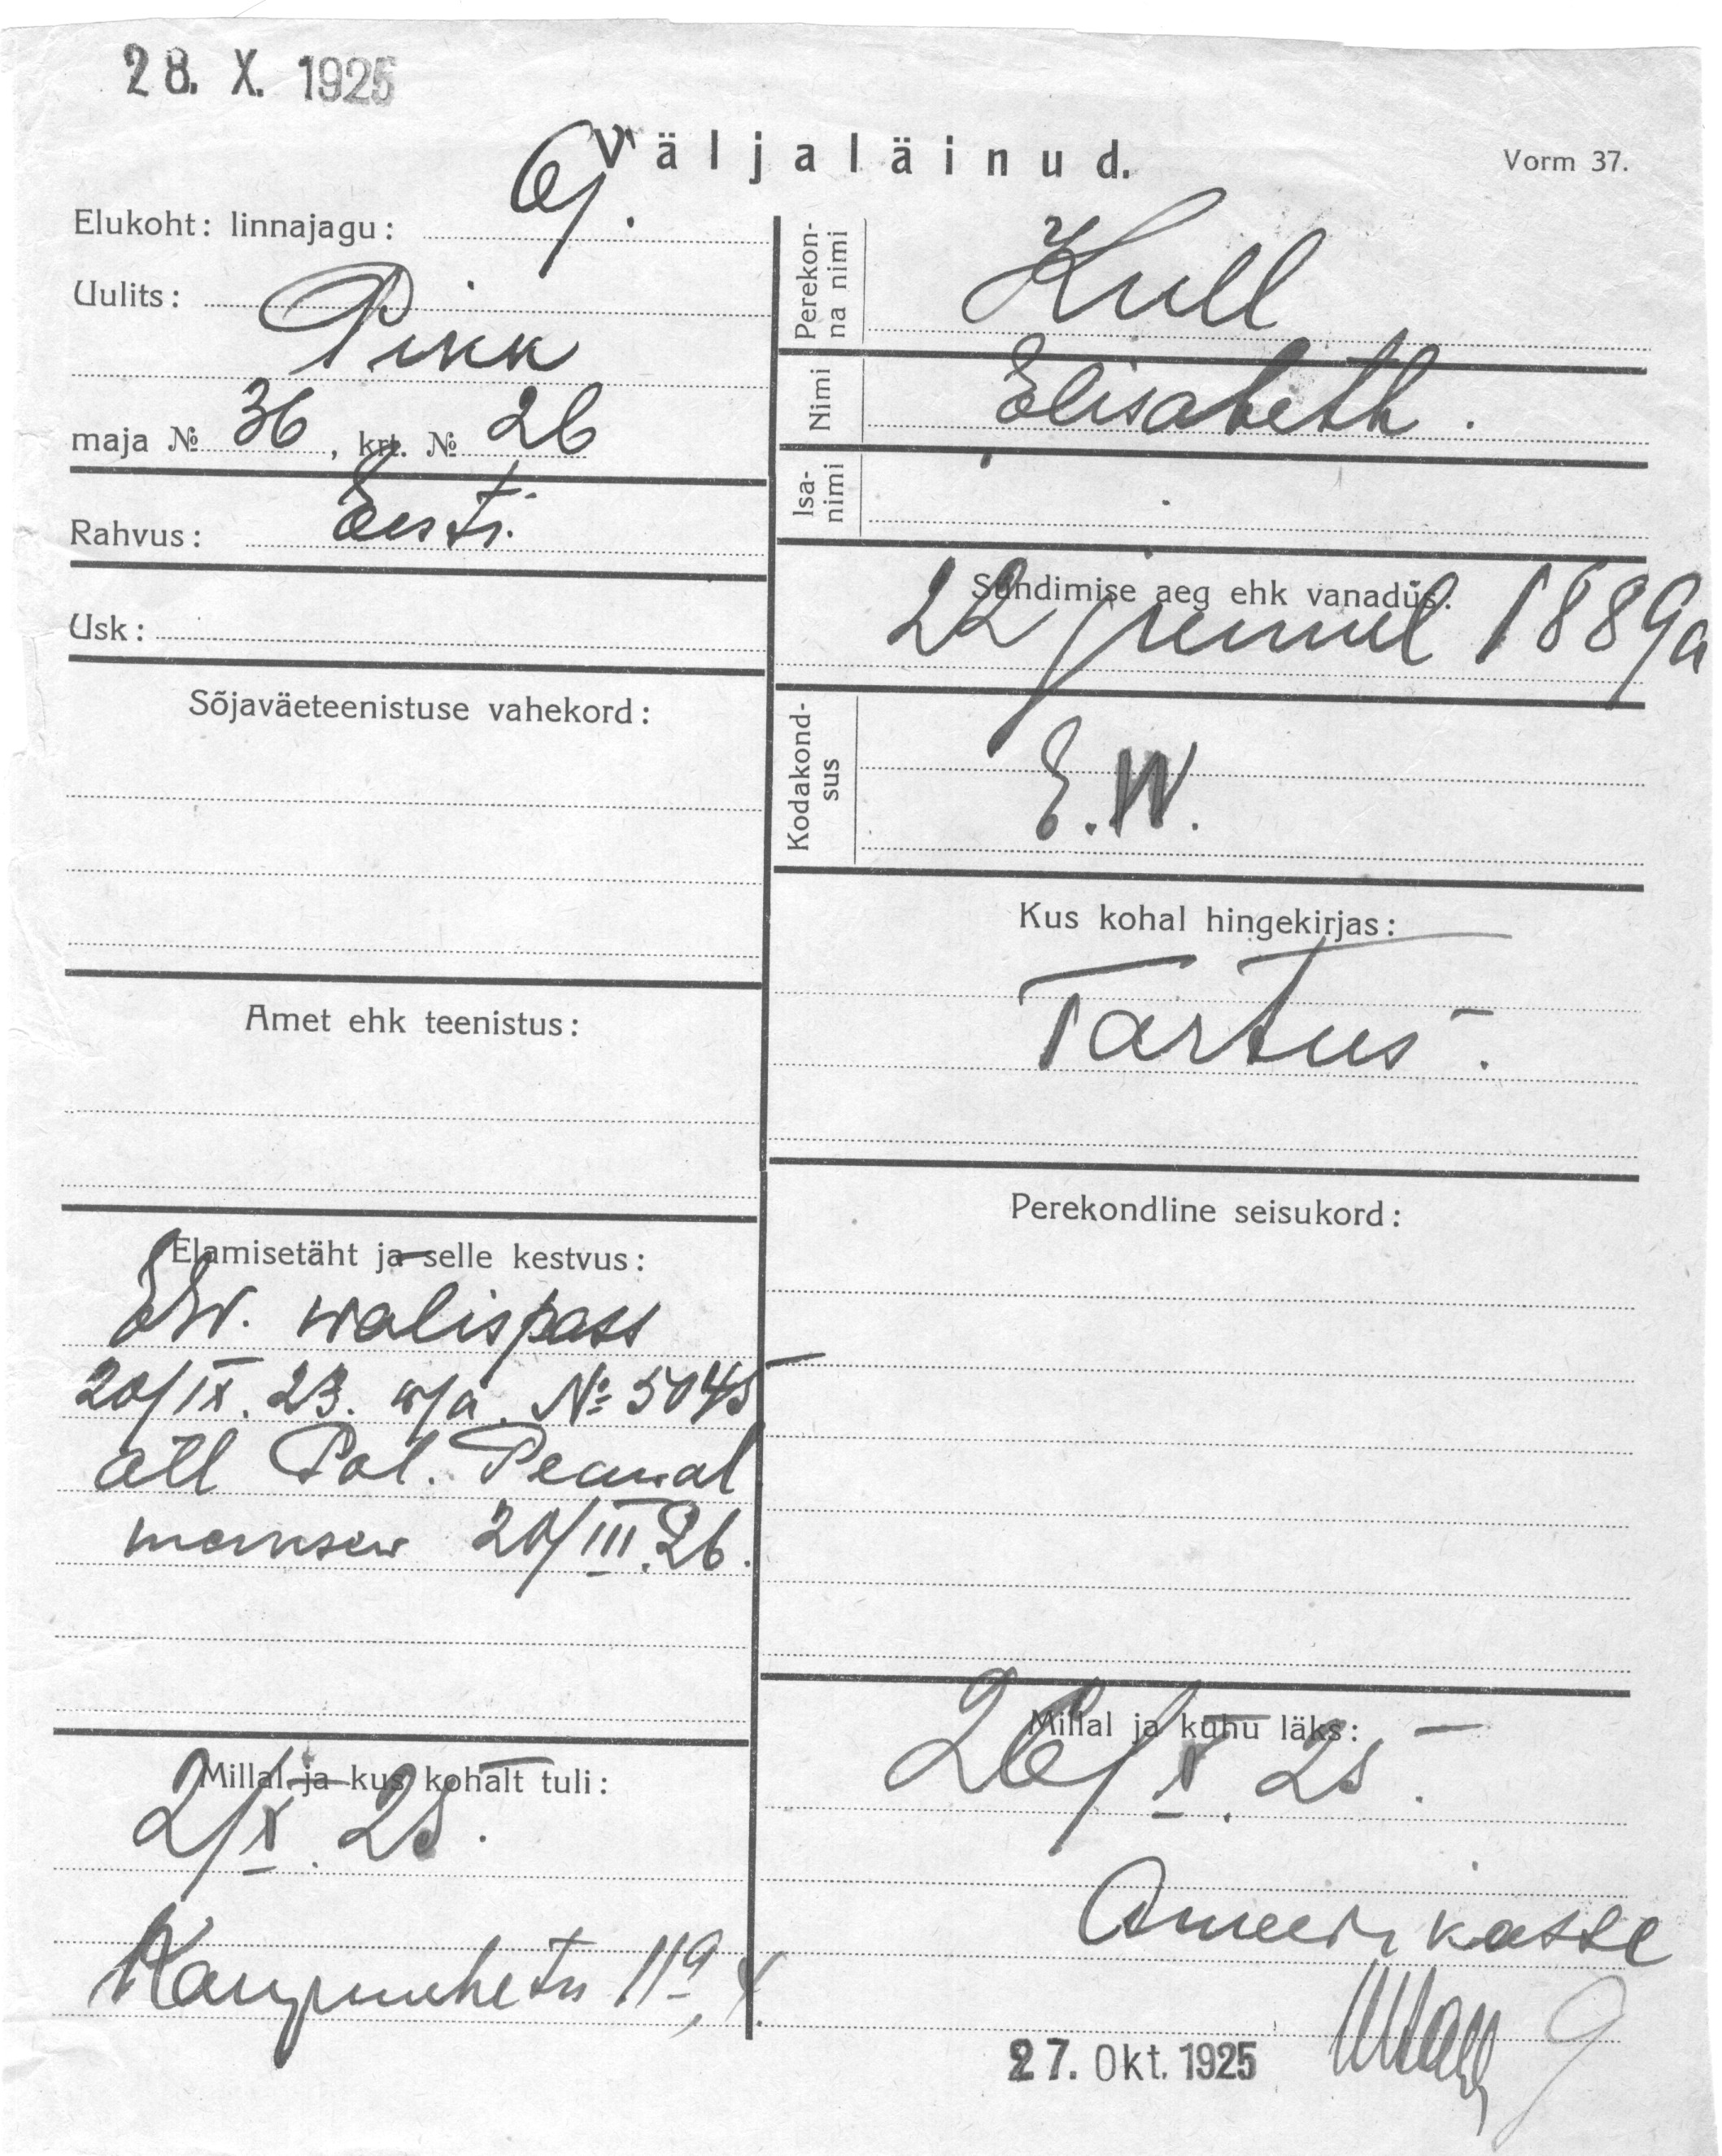 28. X. 1925
Väljaläinud.
Vorm 37.
Elukoht: linnajagu:
Uulits: Pikk
maja № 36, krt. № 26
Rahvus: Eesti.
Usk:
Sõjaväeteenistuse vahekord:
Amet ehk teenistus:
Elamisetäht ja selle kestvus:
EW. walispass
20/IX. 23. w/a. № 5045
all Pol. Peawal
maksew 20/III. 26.
Millal ja kus kohalt tuli:
2/X. 25.
Kaupmehe tn 11a,
Perekonna nimi Kull
Nimi Elisabeth.
Isanimi
Sündimise aeg ehk vanadus:
22 1889a
Kodakondsus E.W.
Kus kohal hingekirjas:
Tartus.
Perekondline seisukord:
Millal ja kuhu läks:
26/X. 25.
Ameerikasse
27. Okt. 1925